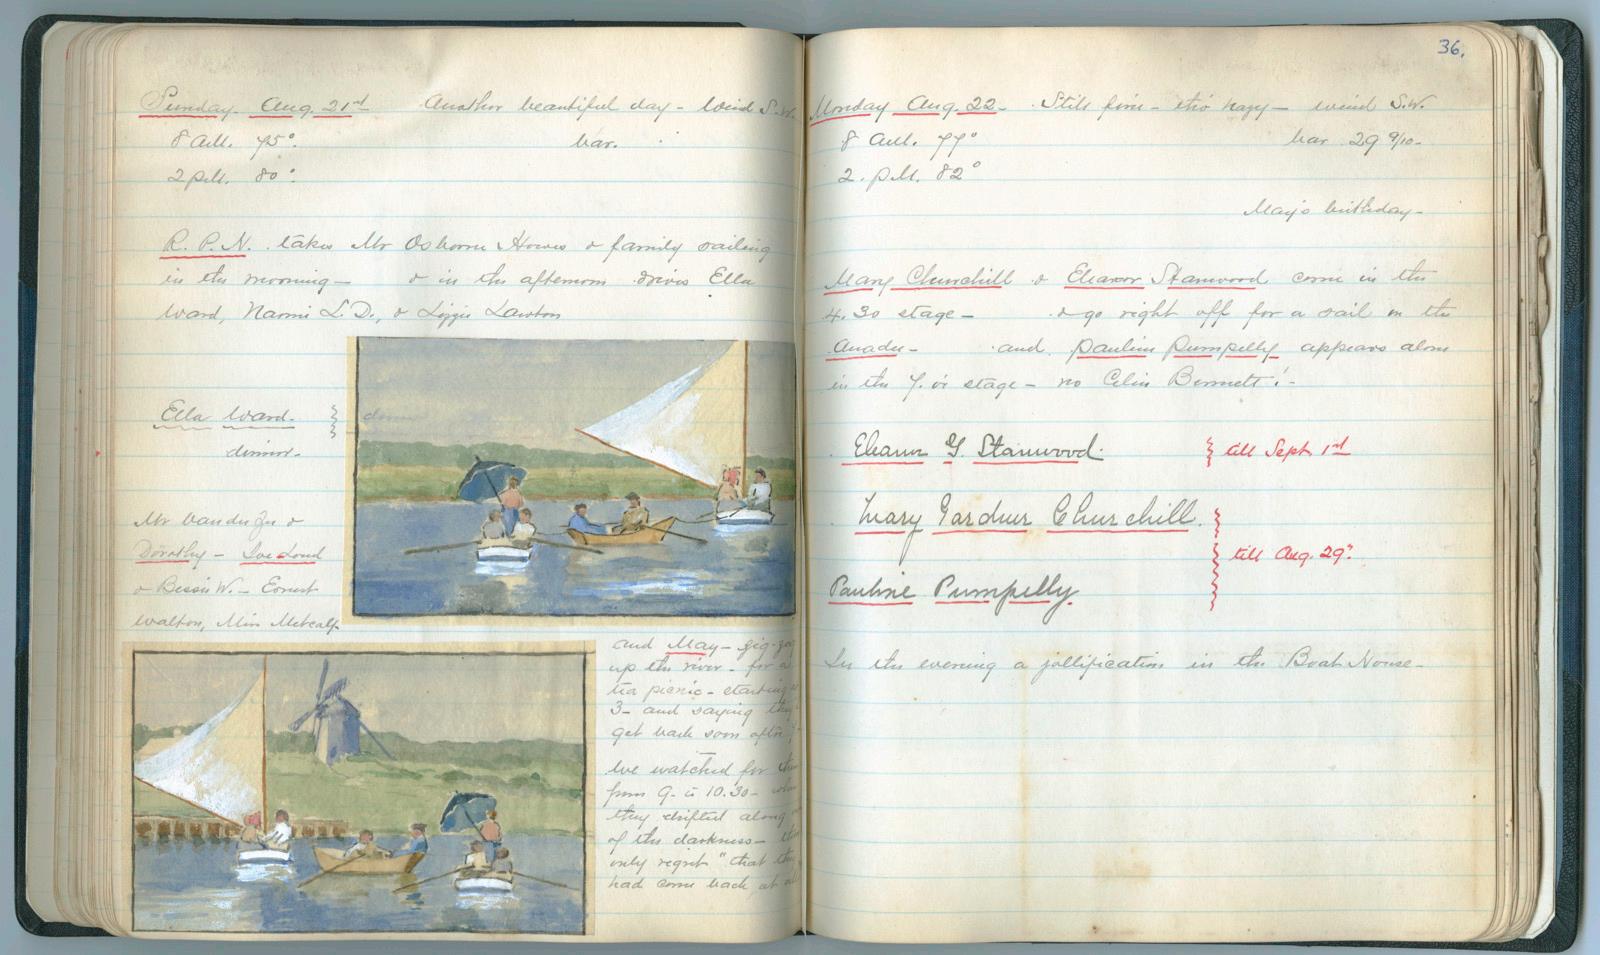 Sunday. Aug. 21st Another beautiful day - Wind S.W.
8 A.M. 75°.
bar.
2 P.M. 80°.
R. P. N. takes Mr Osborne Howes & family sailing
in the morning - & in the afternoon drives Ella
Ward, Naomi L.D., & Lizzie Lawton
Ella Ward.
dinner.
Mr &
Dorothy -
& Bessie W. - Ernest
Walton, Miss Metcalf
and May - zig-zag
up the river - for a
tea picnic - starting
3 - and saying they'd
get back soon after
We watched for them
from 9 - to 10.30 -
they drifted along
of the darkness -
only regret "that they
had come back at all
36.
Monday Aug. 22 - Still fine - tho' hazy - wind S.W.
8 A.M. 77°
bar 29 9/10 -
2. P.M. 82°
May's birthday -
Mary Churchill & Eleanor Stanwood come in the
4.30 stage - & go right off for a sail in the
- and Pauline Pumpelly appears alone
in the stage - no Bennett! -
Eleanor G. Stanwood. till Sept 1st
Mary Gardner Churchill.
till Aug. 29th
Pauline Pumpelly.
In the evening a jollification in the Boat House -